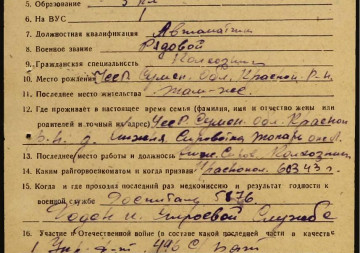 5. Образование 5 кл
6. На ВУС 1
7. Должностная квалификация Автоматчик
8. Военное звание Рядовой
9. Гражданская специальность Колхозник
10. Место рождения УССР Сумск. обл. Красноп. р-н.
11. Последнее место жительства там-же.
12. Где проживает в настоящее время семья (фамилия, имя и отчество жены или
родителей и точный их адрес) УССР Сумск. обл. Красноп
р-н. д. Сыроватка
13. Последнее место работы и должность Колхозник
14. Каким райгорвоенкоматом и когда призван Краснопол.
15. Когда и где проходил последний раз медкомиссию и результат годности к
военной службе Госпиталь
Годен к строевой службе
16. Участие в Отечественной войне (в составе какой последней части в качестве